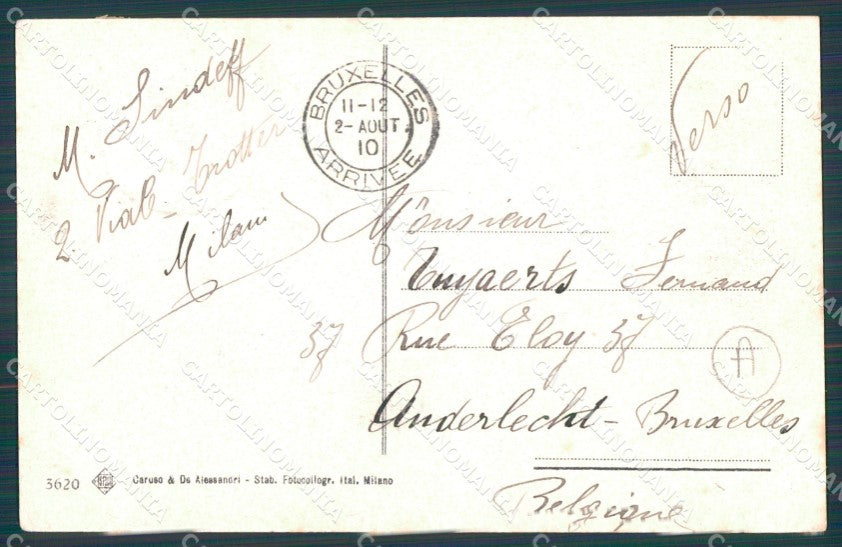 M. Sindeff
2 Viale Trotter
Milano
BRUXELLES
11-12
2- AOUT
10
ARRIVEE
Verso
Monsieur
Tuyaerts Fernand
37 Rue Eloy 37
A
Anderlecht - Bruxelles
Belgique
3620
Caruso & De Alessandri - Stab. Fotocollogr. Ital. Milano
CARTOLINOMANIA